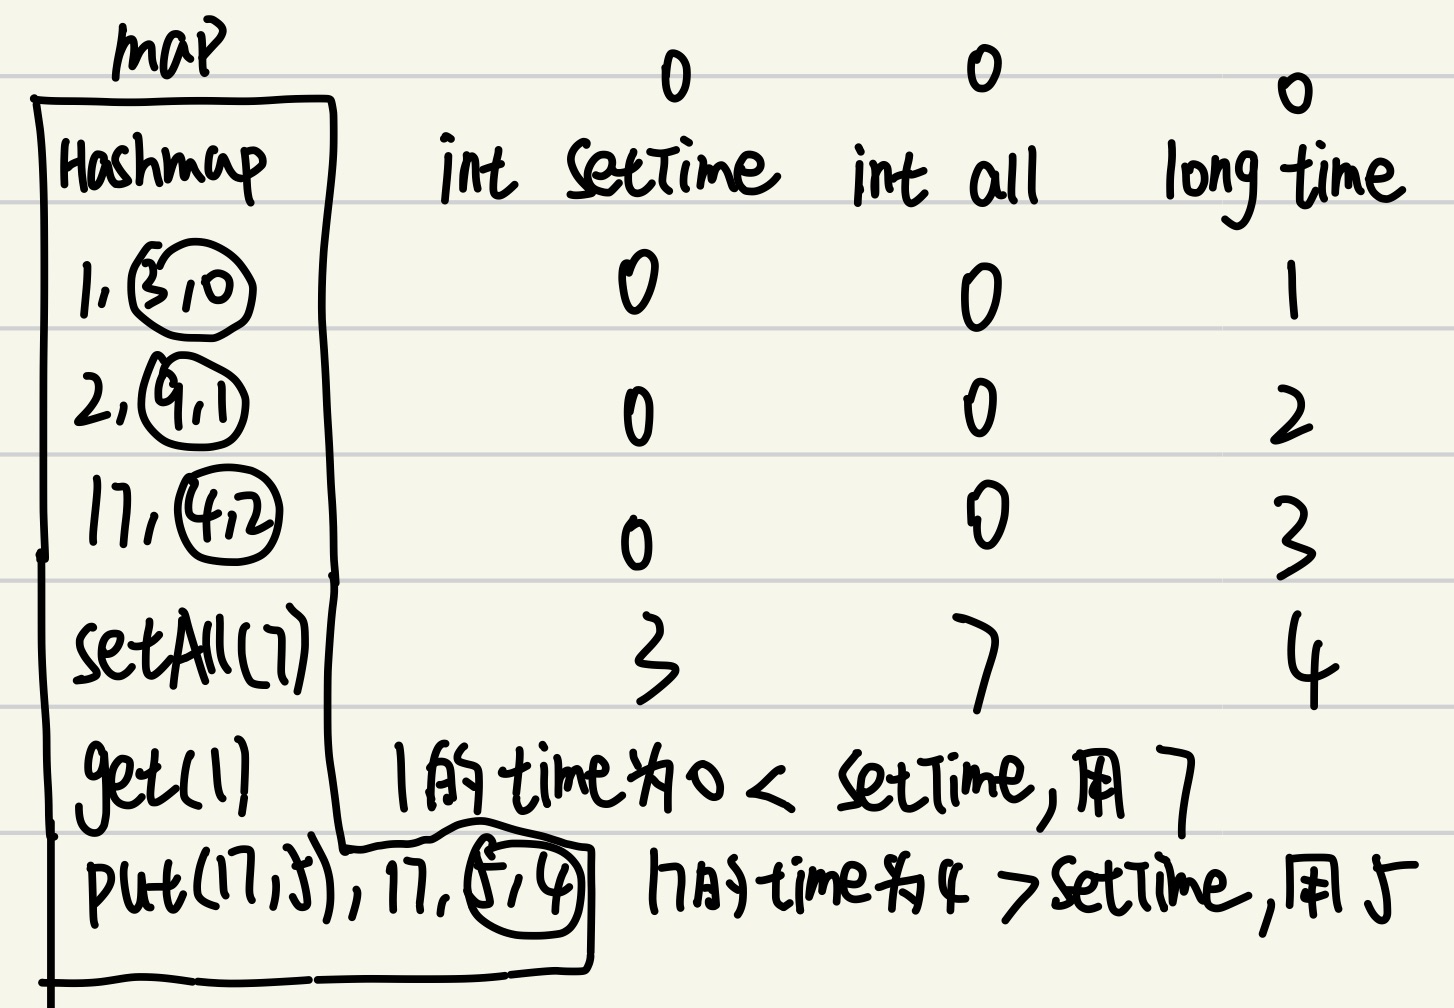 map
0 0 0
Hashmap int setTime int all long time
1, 3,0 0 0 1
2, 9,1 0 0 2
17, 4,2 0 0 3
setAll(7) 3 7 4
get(1) 1的time为0 < setTime,用7
put(17,5), 17, 5,4 17的time为4 > setTime,用5